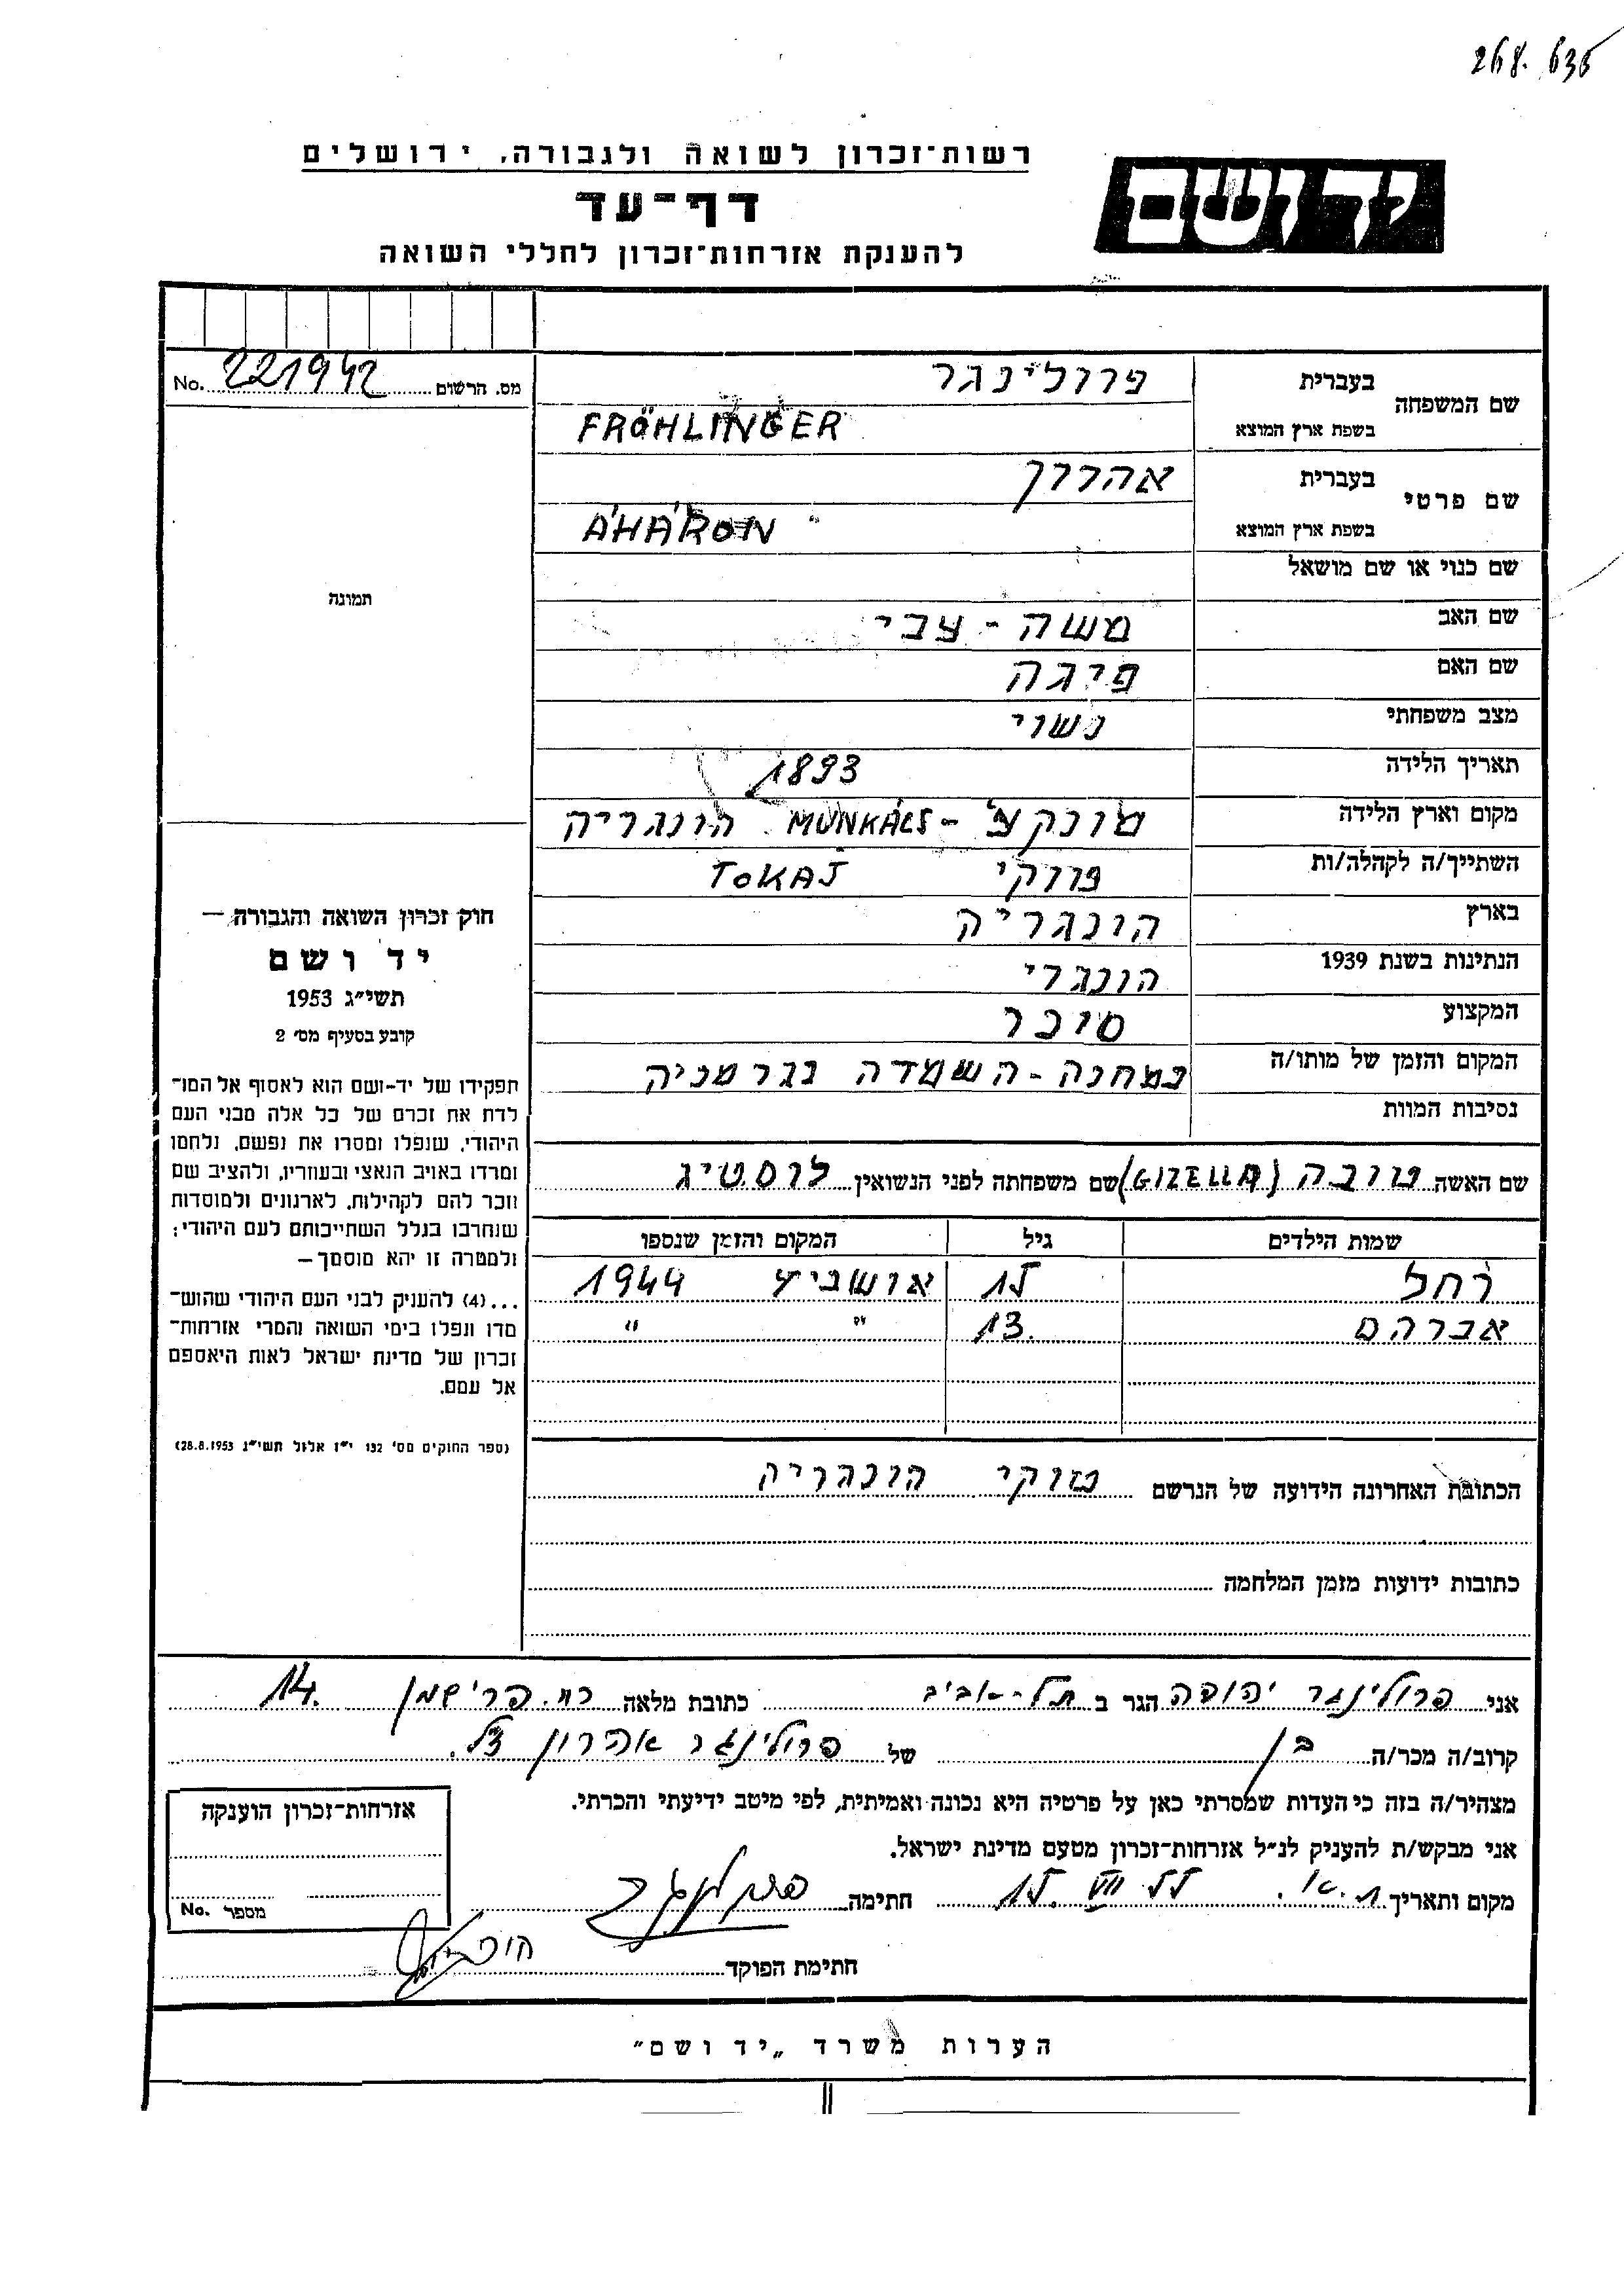 268.636
יד ושם
רשות־זכרון לשואה ולגבורה, ירושלים
דף־עד
להענקת אזרחות־זכרון לחללי השואה
מס. הרשום 221942 No.
תמונה
שם המשפחה
בעברית פרולינגר
בשפת ארץ המוצא FRÖHLINGER
שם פרטי
בעברית אהרון
בשפת ארץ המוצא ÁHÁRON
שם כנוי או שם מושאל
שם האב משה - צבי
שם האם פיגה
מצב משפחתי נשוי
תאריך הלידה 1893
מקום וארץ הלידה מונקץ' - MUNKÁCS הונגריה
השתייך/ה לקהלה/ות TOKAJ
בארץ הונגריה
הנתינות בשנת 1939 הונגרי
המקצוע סוכר
המקום והזמן של מותו/ה במחנה - השמדה בגרמניה
נסיבות המוות
שם האשה טובה (GIZELLA) שם משפחתה לפני הנשואין לוסטיג
שמות הילדים גיל המקום והזמן שנספו
רחל 15 אושביץ 1944
אברהם 13 " "
הכתובת האחרונה הידועה של הנרשם טוקי הונגריה
כתובות ידועות מזמן המלחמה
חוק זכרון השואה והגבורה —
יד ושם
תשי״ג 1953
קובע בסעיף מס׳ 2
תפקידו של יד-ושם הוא לאסוף אל המו־
לדת את זכרם של כל אלה מבני העם
היהודי, שנפלו ומסרו את נפשם, נלחמו
ומרדו באויב הנאצי ובעוזריו, ולהציב שם
וזכר להם לקהילות, לארגונים ולמוסדות
שנחרבו בגלל השתייכותם לעם היהודי;
ולמטרה זו יהא מוסמך —
...(4) להעניק לבני העם היהודי שהוש־
מדו ונפלו בימי השואה והמרי אזרחות־
זכרון של מדינת ישראל לאות היאספם
אל עמם.
(ספר החוקים מס׳ 132 י״ז אלול תשי״ג 28.8.1953)
אני פרולינגר יהודה הגר ב תל-אביב כתובת מלאה רח. פרישמן 14.
קרוב/ה מכר/ה בן של פרולינגר אהרון ז"ל.
מצהיר/ה בזה כי העדות שמסרתי כאן על פרטיה היא נכונה ואמיתית, לפי מיטב ידיעתי והכרתי.
אני מבקש/ת להעניק לנ״ל אזרחות־זכרון מטעם מדינת ישראל.
מקום ותאריך ת.א. 15. VII 55 חתימה פרולינגר
חתימת הפוקד
אזרחות־זכרון הוענקה
מספר No.
הערות משרד „יד ושם"